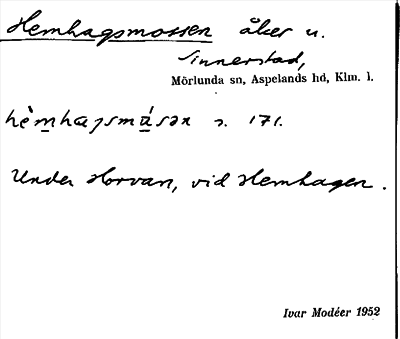 Hemhagsmossen åker u.
Sinnerstad,
Mörlunda sn, Aspelands hd, Klm. l.
s. 171.
Under Horvan, vid Hemhagen.
Ivar Modéer 1952